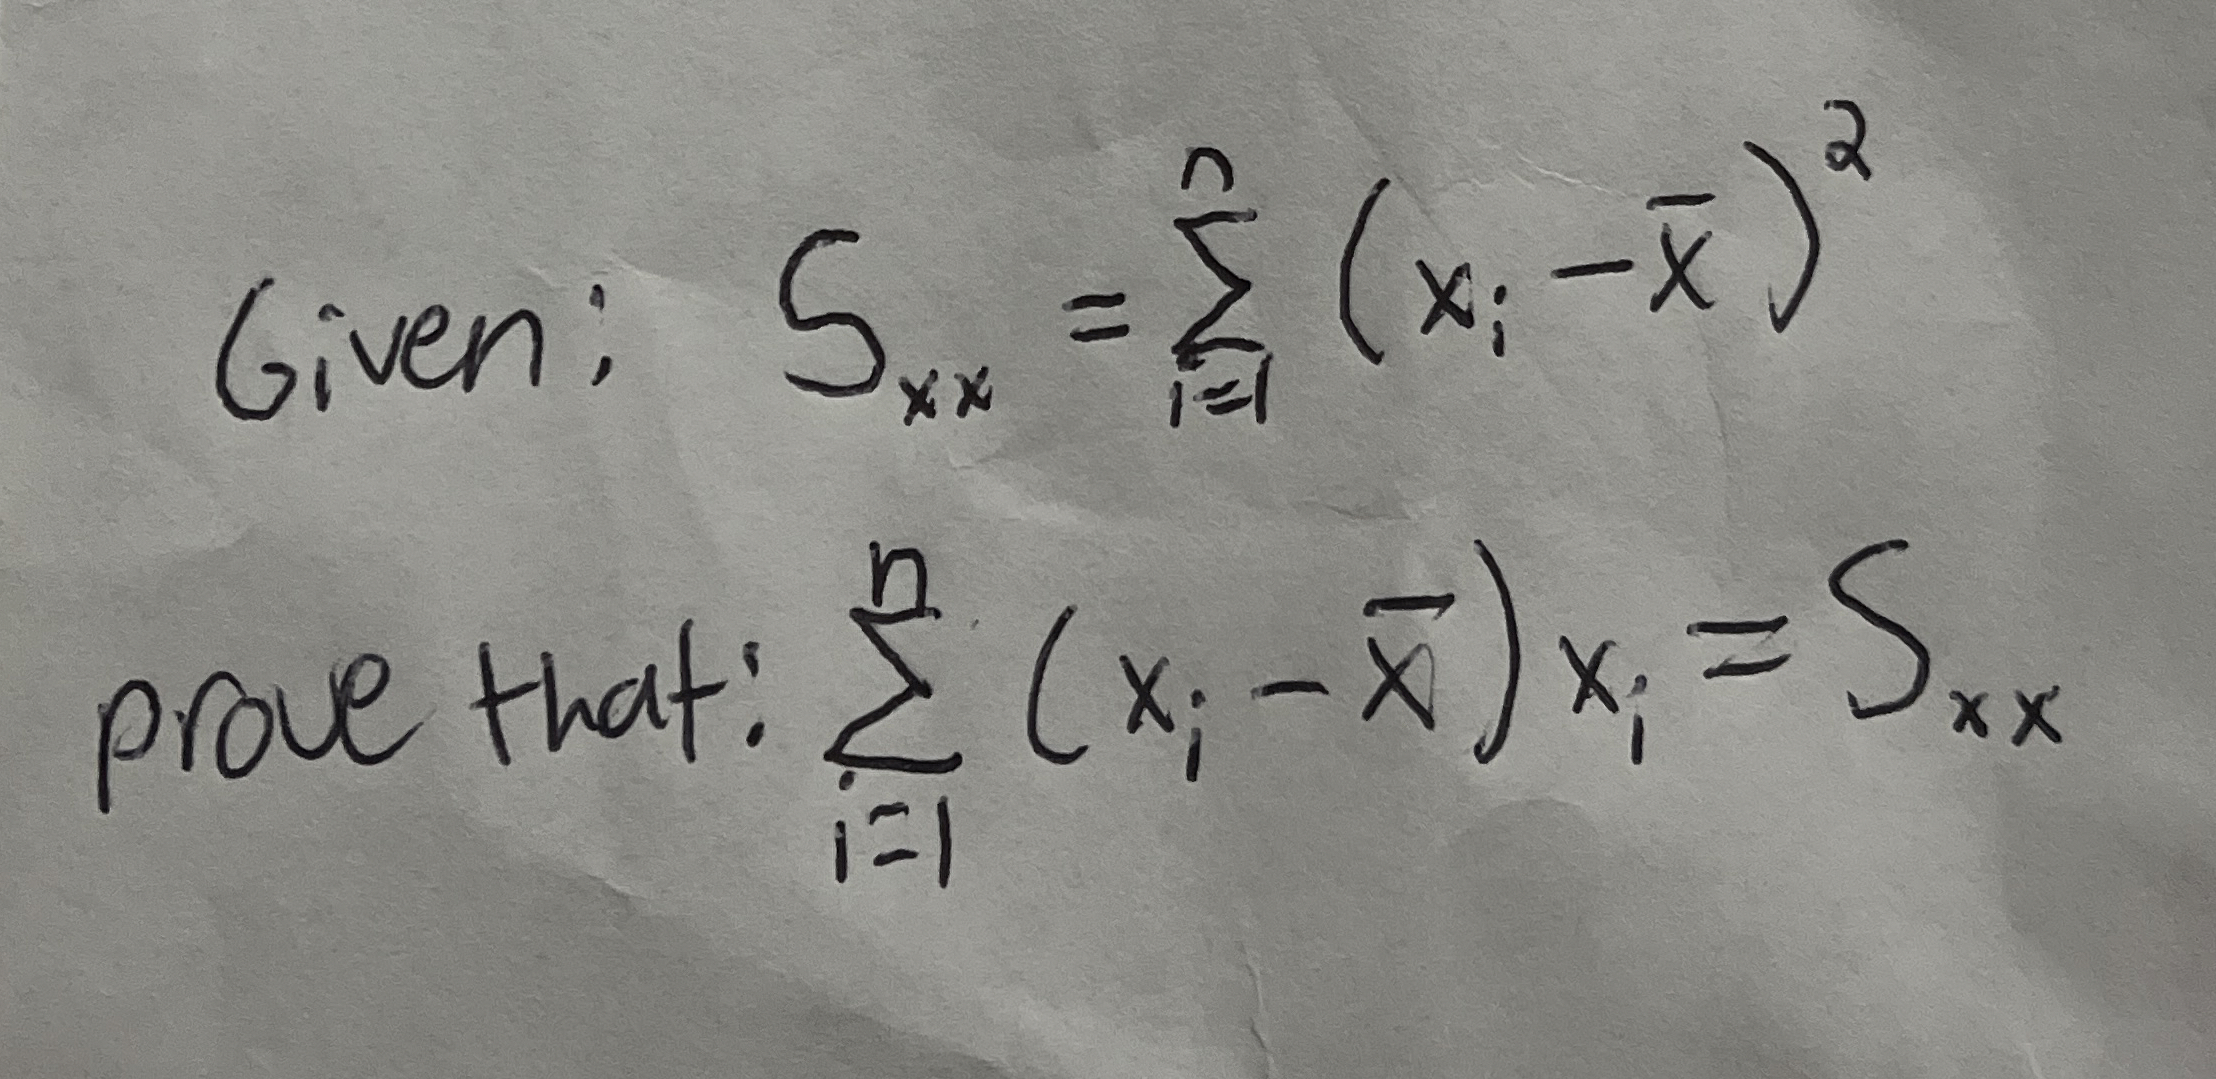 Given: S_xx = \sum_{i=1}^{n} (x_i - \bar{x})^2
prove that: \sum_{i=1}^{n} (x_i - \bar{x}) x_i = S_xx